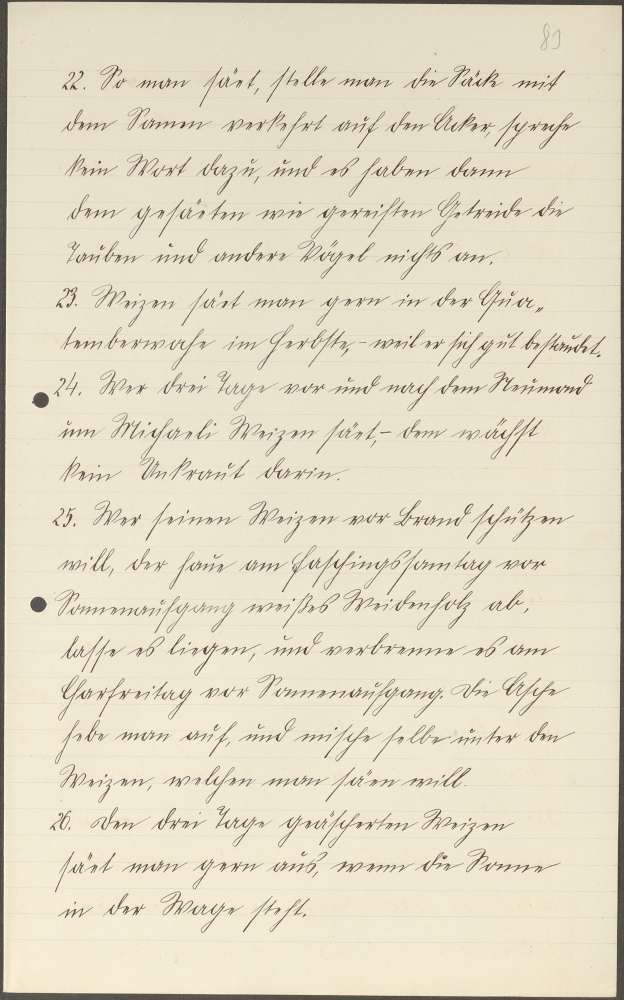 89
22. So man säet, stelle man die Säcke mit
dem Samen verkehrt auf den Acker, spreche
kein Wort dazu, und es haben dann
dem gesäeten wie gereiften Getreide die
Tauben und andere Vögel nichts an.
23. Weizen säet man gern in der Qua„
temberwoche im Herbste, - weil er sich gut bestaudet.
24. Wer drei Tage vor und nach dem Neumond
um Michaeli Weizen säet, - dem wächst
kein Unkraut darin.
25. Wer seinen Weizen vor Brand schützen
will, der haue am Faschingssamtag vor
Sonnenaufgang weißes Weidenholz ab,
lasse es liegen, und verbrenne es am
Charfreitag vor Sonnenaufgang. Die Asche
hebe man auf, und mische selbe unter den
Weizen, welchen man säen will.
26. Den drei Tage geäscherten Weizen
säet man gern aus, wenn die Sonne
in der Wage steht.